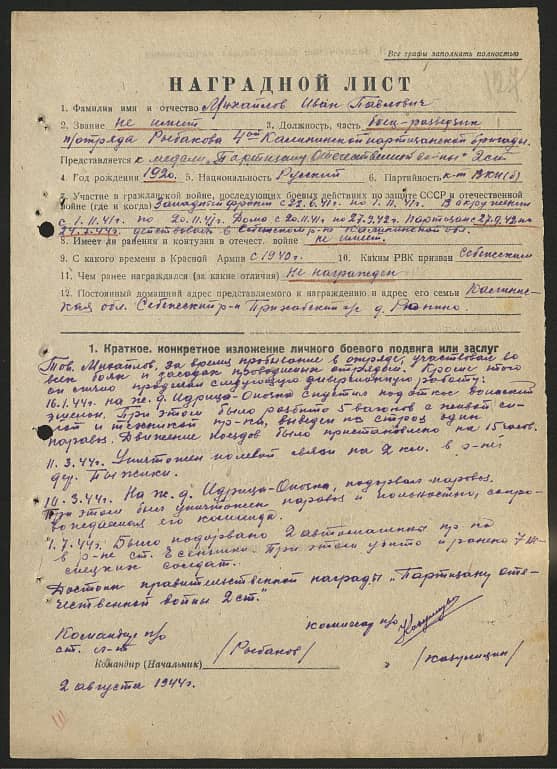 Все графы заполнять полностью
124
НАГРАДНОЙ ЛИСТ
1. Фамилия имя и отчество Михайлов Иван Павлович
2. Звание не имеет 3. Должность, часть боец-разведчик
п/отряда Рыбакова 4ой Калининской партизанской бригады.
Представляется к медали „Партизану Отечественной войны" 2 ст
4. Год рождения 1920. 5. Национальность Русский 6. Партийность к-т ВКП(б)
7. Участие в гражданской войне, последующих боевых действиях по защите СССР и отечественной
войне (где и когда) Западный фронт с 22.6.41 по 1.11.41г. В окружении
с 1.11.41 по 20.11.41г. Дома с 20.11.41 по 27.9.42г. Партизан с 27.9.42 по
24.7.44г. действовал в Себежском р-не Калининской обл.
8. Имеет ли ранения и контузии в отечест. войне не имеет.
9. С какого времени в Красной Армии с 1940г. 10. Каким РВК призван Себежским
11. Чем ранее награждался (за какие отличия) Не награжден
12. Постоянный домашний адрес представляемого к награждению и адрес его семьи Калинин-
ская обл. Себежский р-н д.
1. Краткое, конкретное изложение личного боевого подвига или заслуг
Тов. Михайлов, за время пребывание в отряде, участвовал во
всех боях и засадах проводимых отрядом. Кроме этого
он лично проделал следующую диверсионную работу:
16.1.44г. на ж.д. Идрица-Опочка спустил под откос воинский
эшелон. При этом было разбито 5 вагонов с живой си-
лой и техникой пр-ка, выведен из строя один
паровоз. Движение поездов было приостановлено на 15 часов.
11.3.44г. Уничтожен полевой связи на 2 км. в р-не
д.
10.3.44г. На ж.д. Идрица-Опочка, подорвал паровоз.
При этом был уничтожен паровоз и полностью, сопро-
вождаемая его команда.
1.7.44г. Было подорвано 2 автомашины пр-ка
в р-не ст. При этом убито и ранено 7 не-
мецких солдат.
Достоин правительственной награды „Партизану оте-
чественной войны 2 ст."
Командир п/о
ст. л-т
/Рыбаков/
комиссар п/о
Командир (Начальник)
2 августа 1944г.